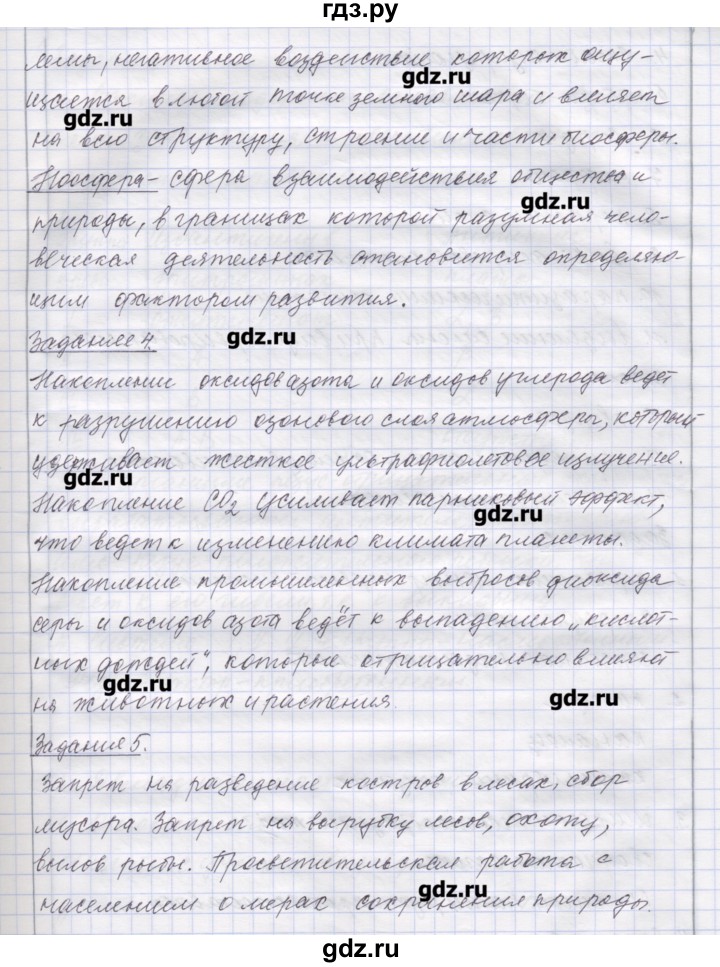 гдз.ру
лемы, негативное воздействие которых ощу-
gdz.ru
щается в любой точке земного шара и влияет
gdz.ru
на всю структуру, строение и части биосферы.
Ноосфера - сфера взаимодействия общества и
gdz.ru
природы, в границах которой разумная чело-
веческая деятельность становится определяю-
щим фактором развития.
Задание 4.
gdz.ru
Накопление оксидов азота и оксидов углерода ведёт
к разрушению озонового слоя атмосферы, который
удерживает жесткое ультрафиолетовое излучение.
gdz.ru
Накопление CO2 усиливает парниковый эффект,
gdz.ru
что ведет к изменению климата планеты.
Накопление промышленных выбросов диоксида
серы и оксидов азота ведёт к выпадению „кислот-
ных дождей", которые отрицательно влияют
gdz.ru
на животных и растения.
gdz.ru
Задание 5.
Запрет на разведение костров в лесах, сбор
мусора. Запрет на вырубку лесов, охоту,
вылов рыбы. Просветительская работа с
gdz.ru
населением о мерах сохранения природы.
gdz.ru